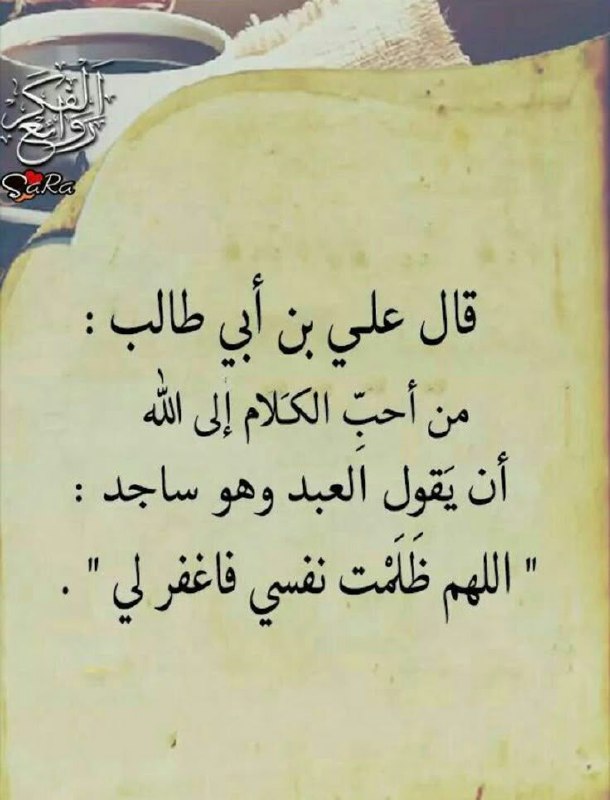 روائع الفكر
SaRa
قال علي بن أبي طالب :
من أحبِّ الكَلام إلى الله
أن يَقول العبد وهو ساجد :
" اللهم ظَلَمْت نفسي فاغفر لي " .